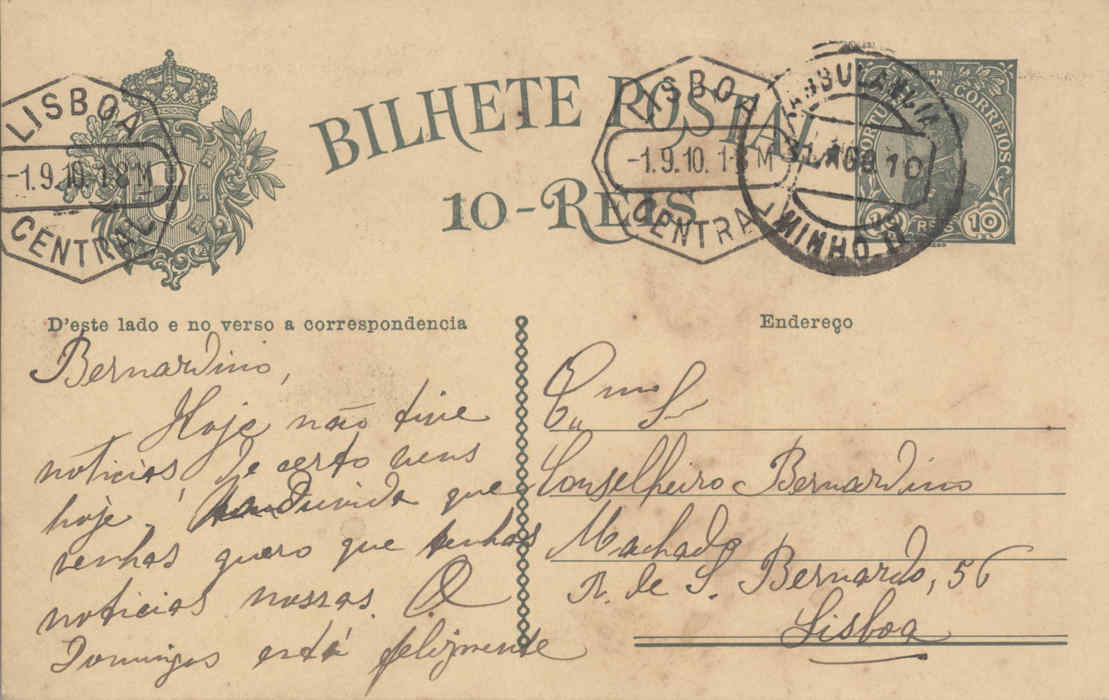 LISBOA
-1.9.10. 1-8 M
CENTRAL
BILHETE POSTAL
10-REIS
LISBOA
-1.9.10. 1-8 M
CENTRAL
AMBULANCIA
AGO 10
MINHO. II
PORTUGAL CORREIOS
10 REIS 10
D'este lado e no verso a correspondencia
Bernardino,
Hoje não tive
noticias, de certo vens
hoje, duvida que
venhas quero que tenhas
noticias nossas. O
Domingos está felizmente
Endereço
Exmo Sr
Conselheiro Bernardino
Machado
R. de S. Bernardo, 56
Lisboa